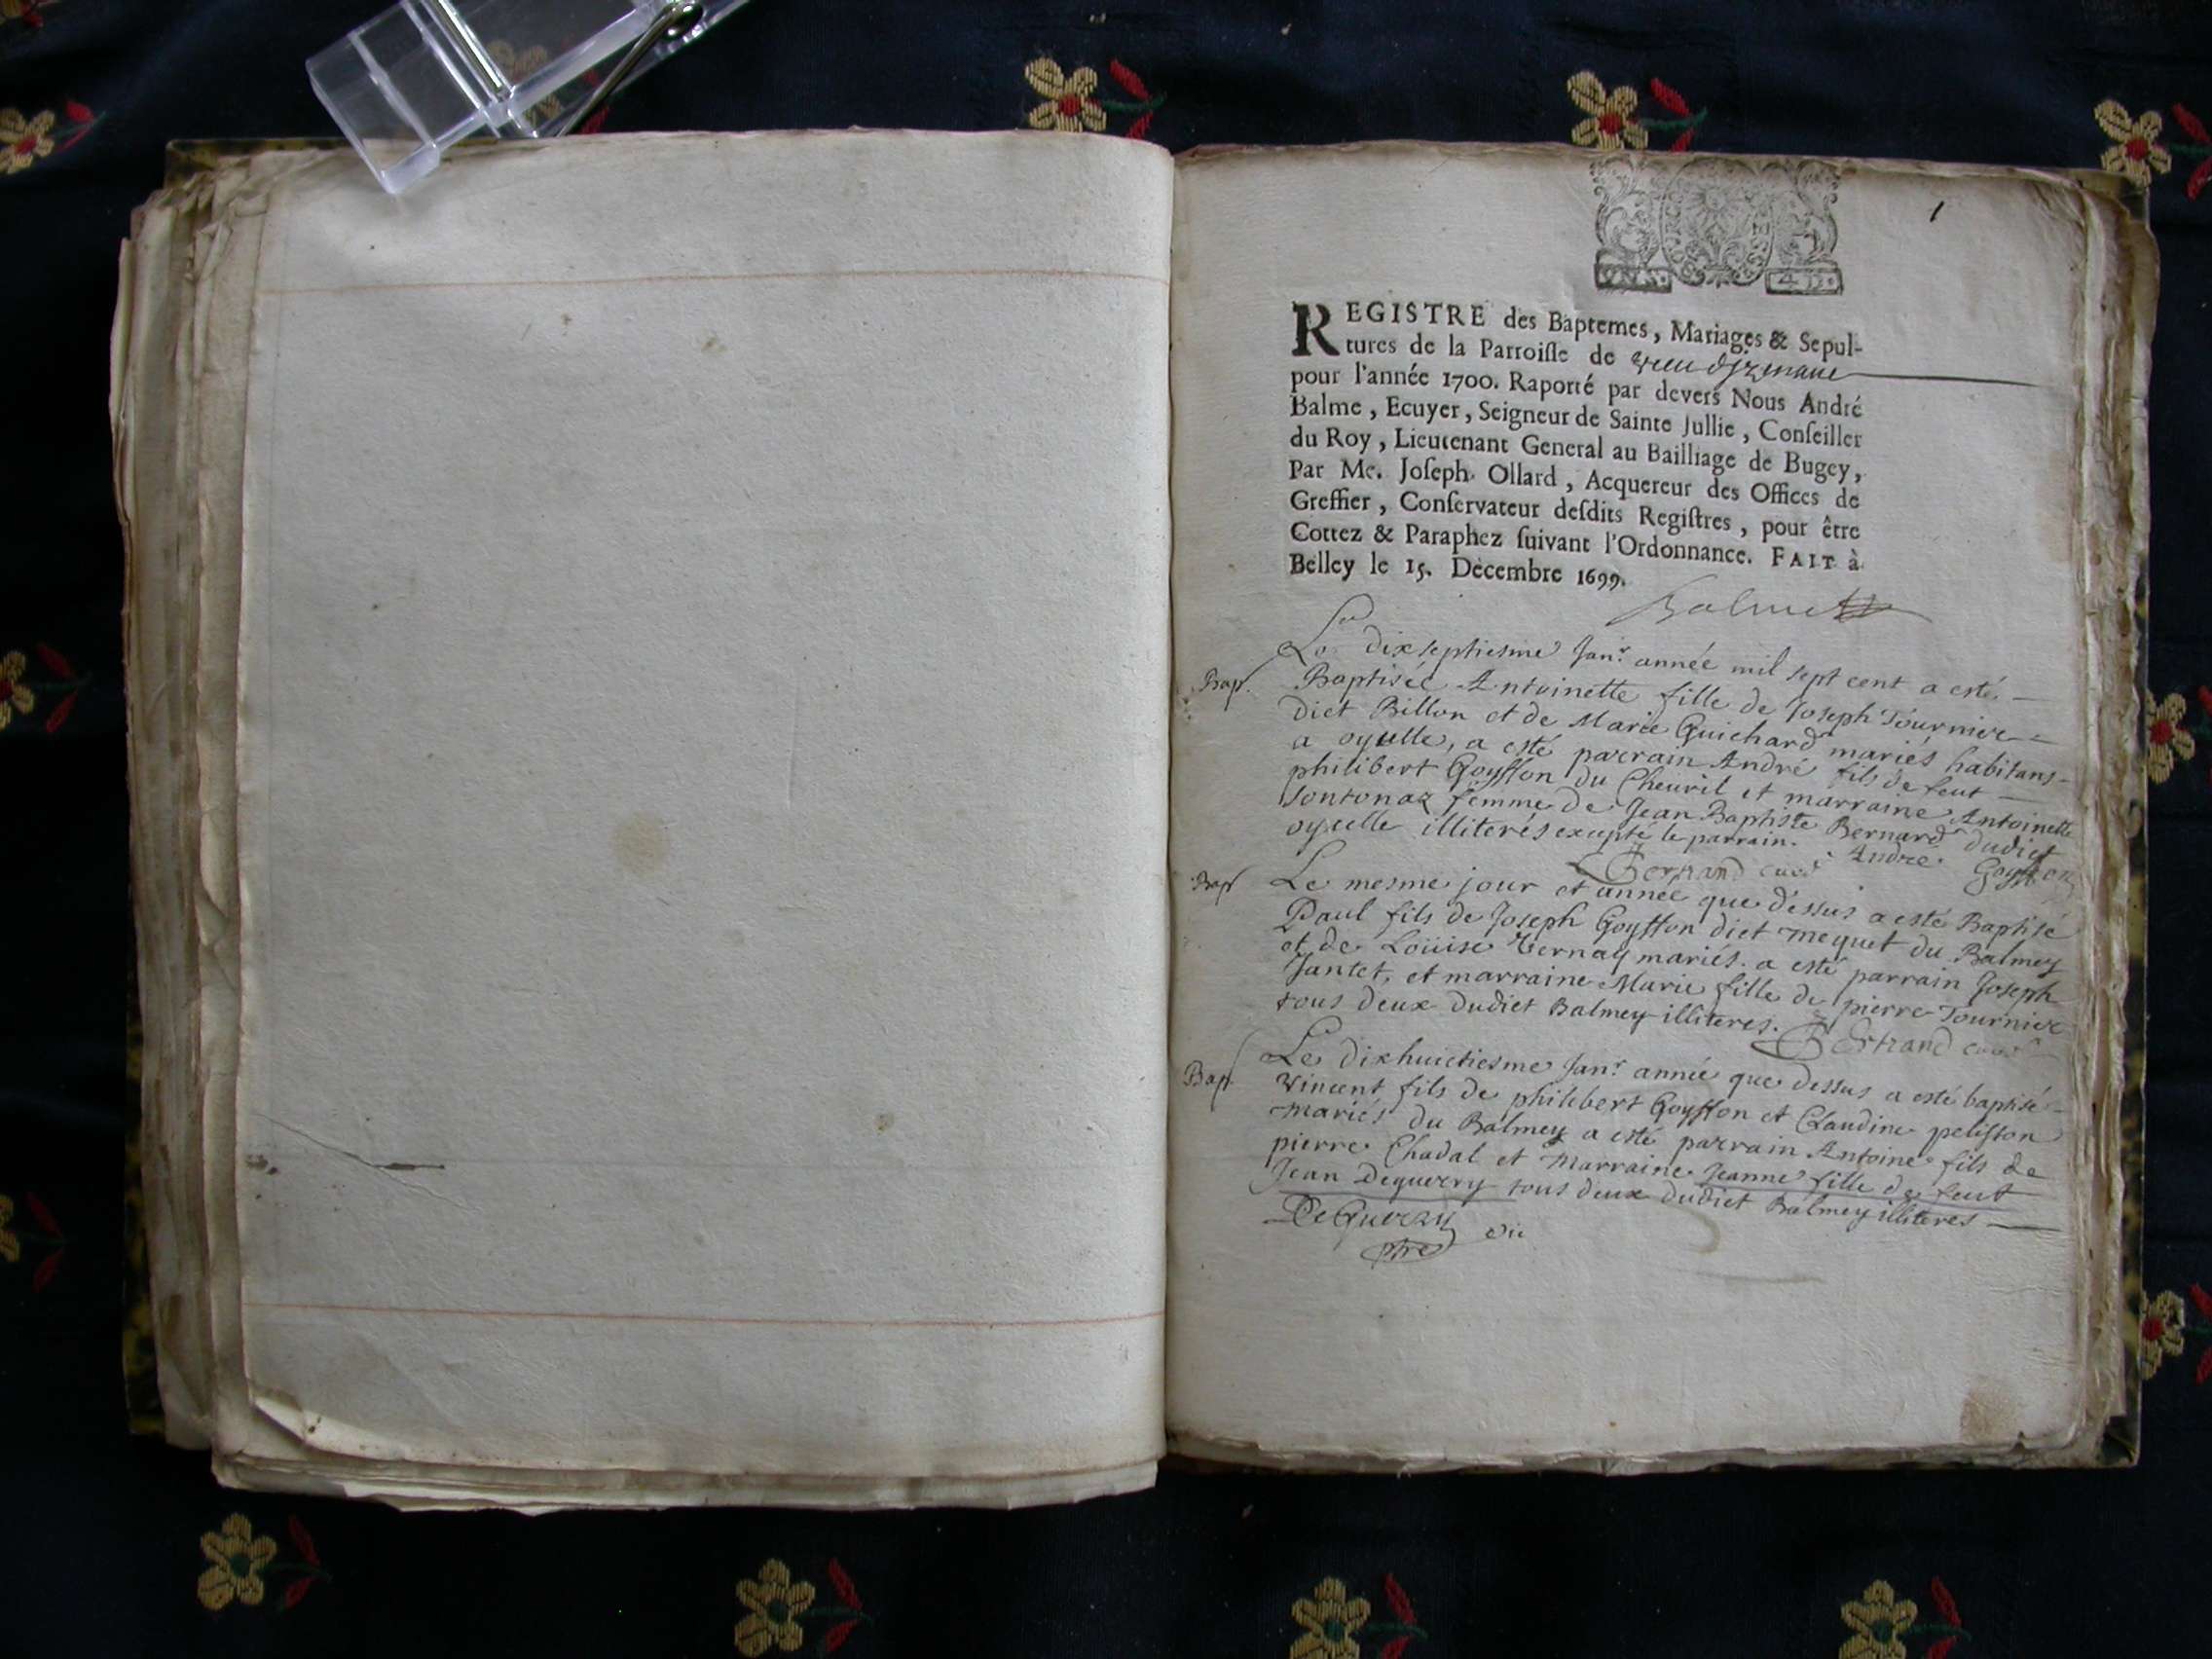 1
REGISTRE des Baptemes, Mariages & Sepul-
tures de la Parroisse de vieu d'izenave
pour l'année 1700. Raporté par devers Nous André
Balme, Ecuyer, Seigneur de Sainte Jullie, Conseiller
du Roy, Lieutenant General au Bailliage de Bugey,
Par Me. Joseph Ollard, Acquereur des Offices de
Greffier, Conservateur desdits Registres, pour être
Cottez & Paraphez suivant l'Ordonnance. FAIT à
Belley le 15. Decembre 1699.
Balme
Le dixseptiesme Janr. année mil sept cent a esté
Bap. Baptisée Antoinette fille de Joseph Tournier
dict Billon et de Marie Guichard mariés habitans
a oyselle, a esté parrain André fils de feut
philibert Goyffon du Cheuril et marraine Antoinette
Sontonaz femme de Jean Baptiste Bernard dudict
oyselle illiterés excepté le parrain. André Goyffon
Bertrand curé
Bap Le mesme jour et année que dessus a esté Baptisé
Paul fils de Joseph Goyffon dict mequet du Balmey
et de Loüise Vernay mariés. a esté parrain Joseph
Jantet, et marraine Marie fille de pierre Tournier
tous deux dudict Balmey illiteres. Bertrand curé
Le dixhuictiesme Janr. année que dessus a esté baptisé
Bap. Vincent fils de philibert Goyffon et Claudine pelisson
mariés du Balmey a esté parrain Antoine fils de
pierre Chadal et Marraine Jeanne fille de feut
Jean Dequerry tous deux dudict Balmey illiteres
DeQuerry vic
ptre